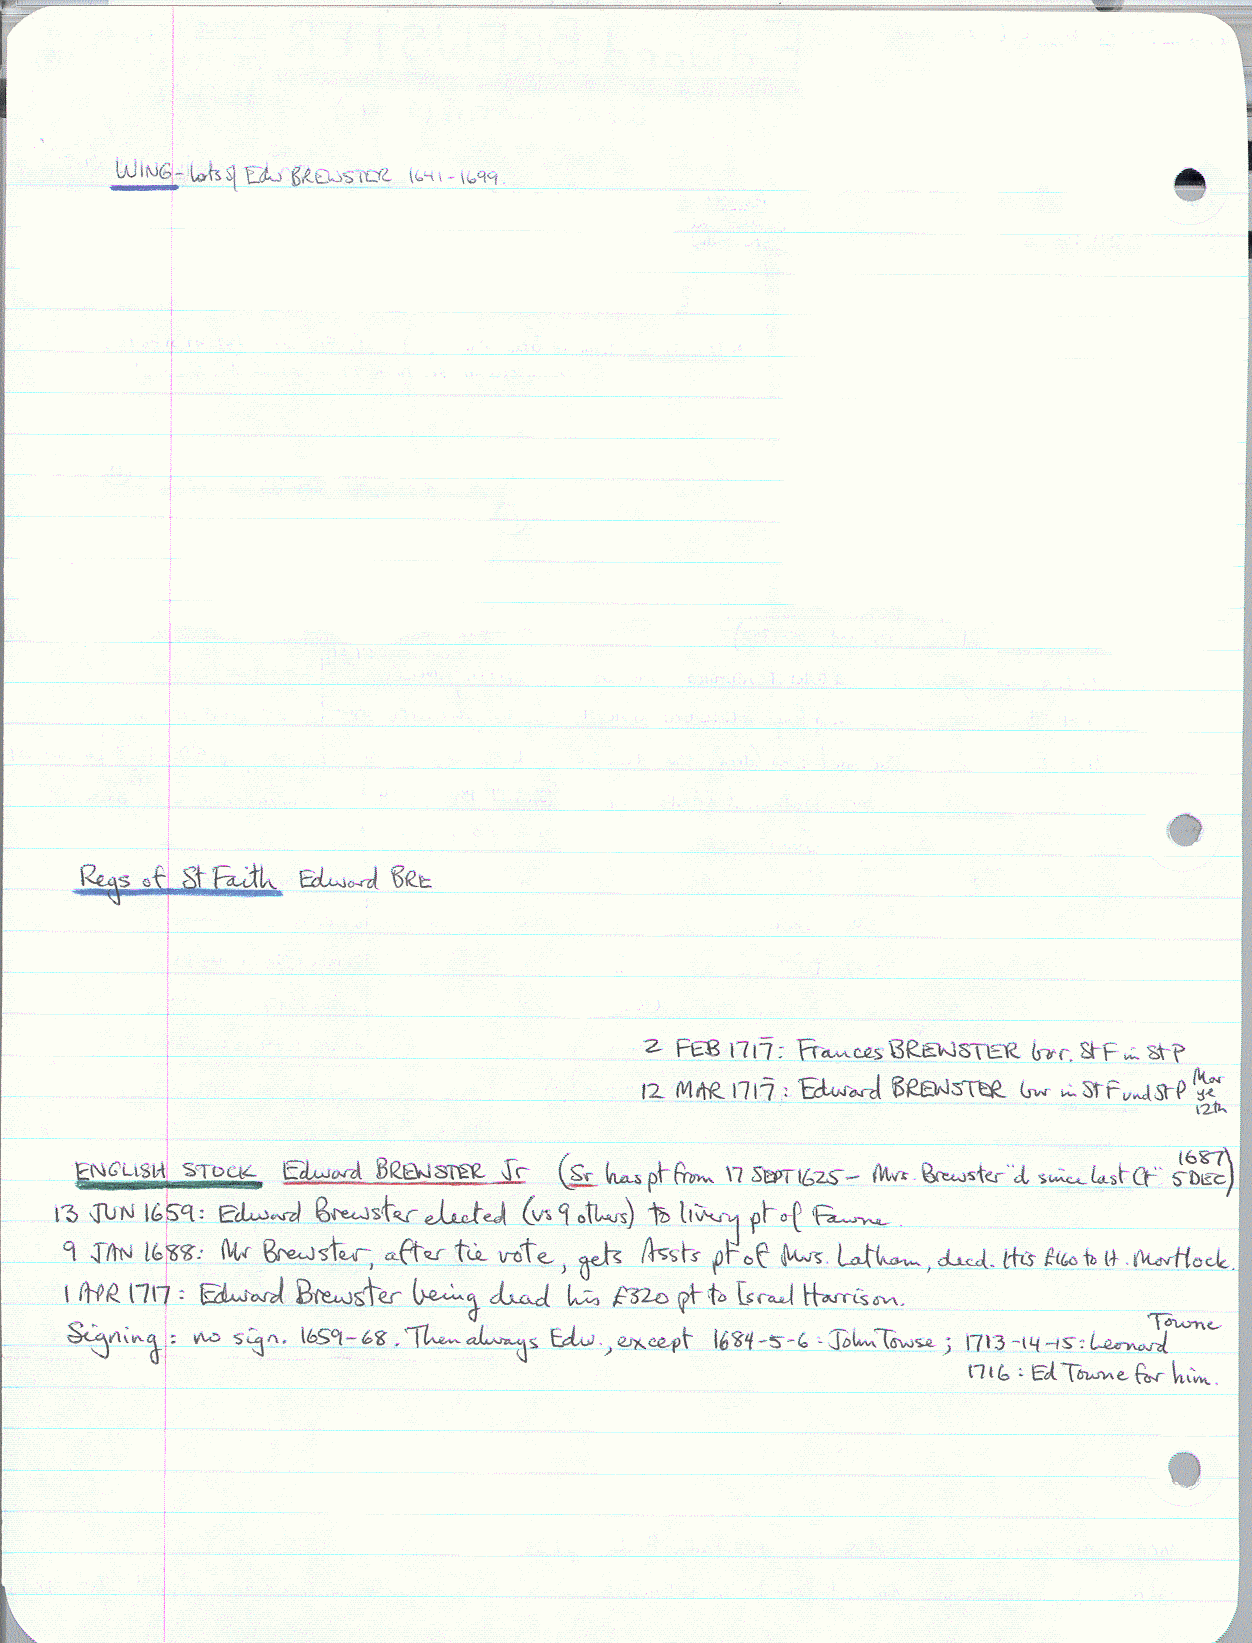 WING - Lots of Edw BREWSTER 1641-1699.
Regs of St Faith Edward BRE
2 FEB 1717: Frances BREWSTER bur. St F in St P
12 MAR 1717: Edward BREWSTER bur in St F und St P Mar ye 12th
ENGLISH STOCK Edward BREWSTER Jr (Sr has pt from 17 SEPT 1625 - Mrs. Brewster "d since last Ct" 5 DEC 1687)
13 JUN 1659: Edward Brewster elected (vs 9 others) to livery pt of Fawne.
9 JAN 1688: Mr Brewster, after tie vote, gets Assts pt of Mrs. Latham, decd. His £160 to H. Mortlock.
1 APR 1717: Edward Brewster being dead his £320 pt to Israel Harrison.
Signing: no sign. 1659-68. Then always Edw., except 1684-5-6: John Towse; 1713-14-15: Leonard Towne
1716: Ed Towne for him.